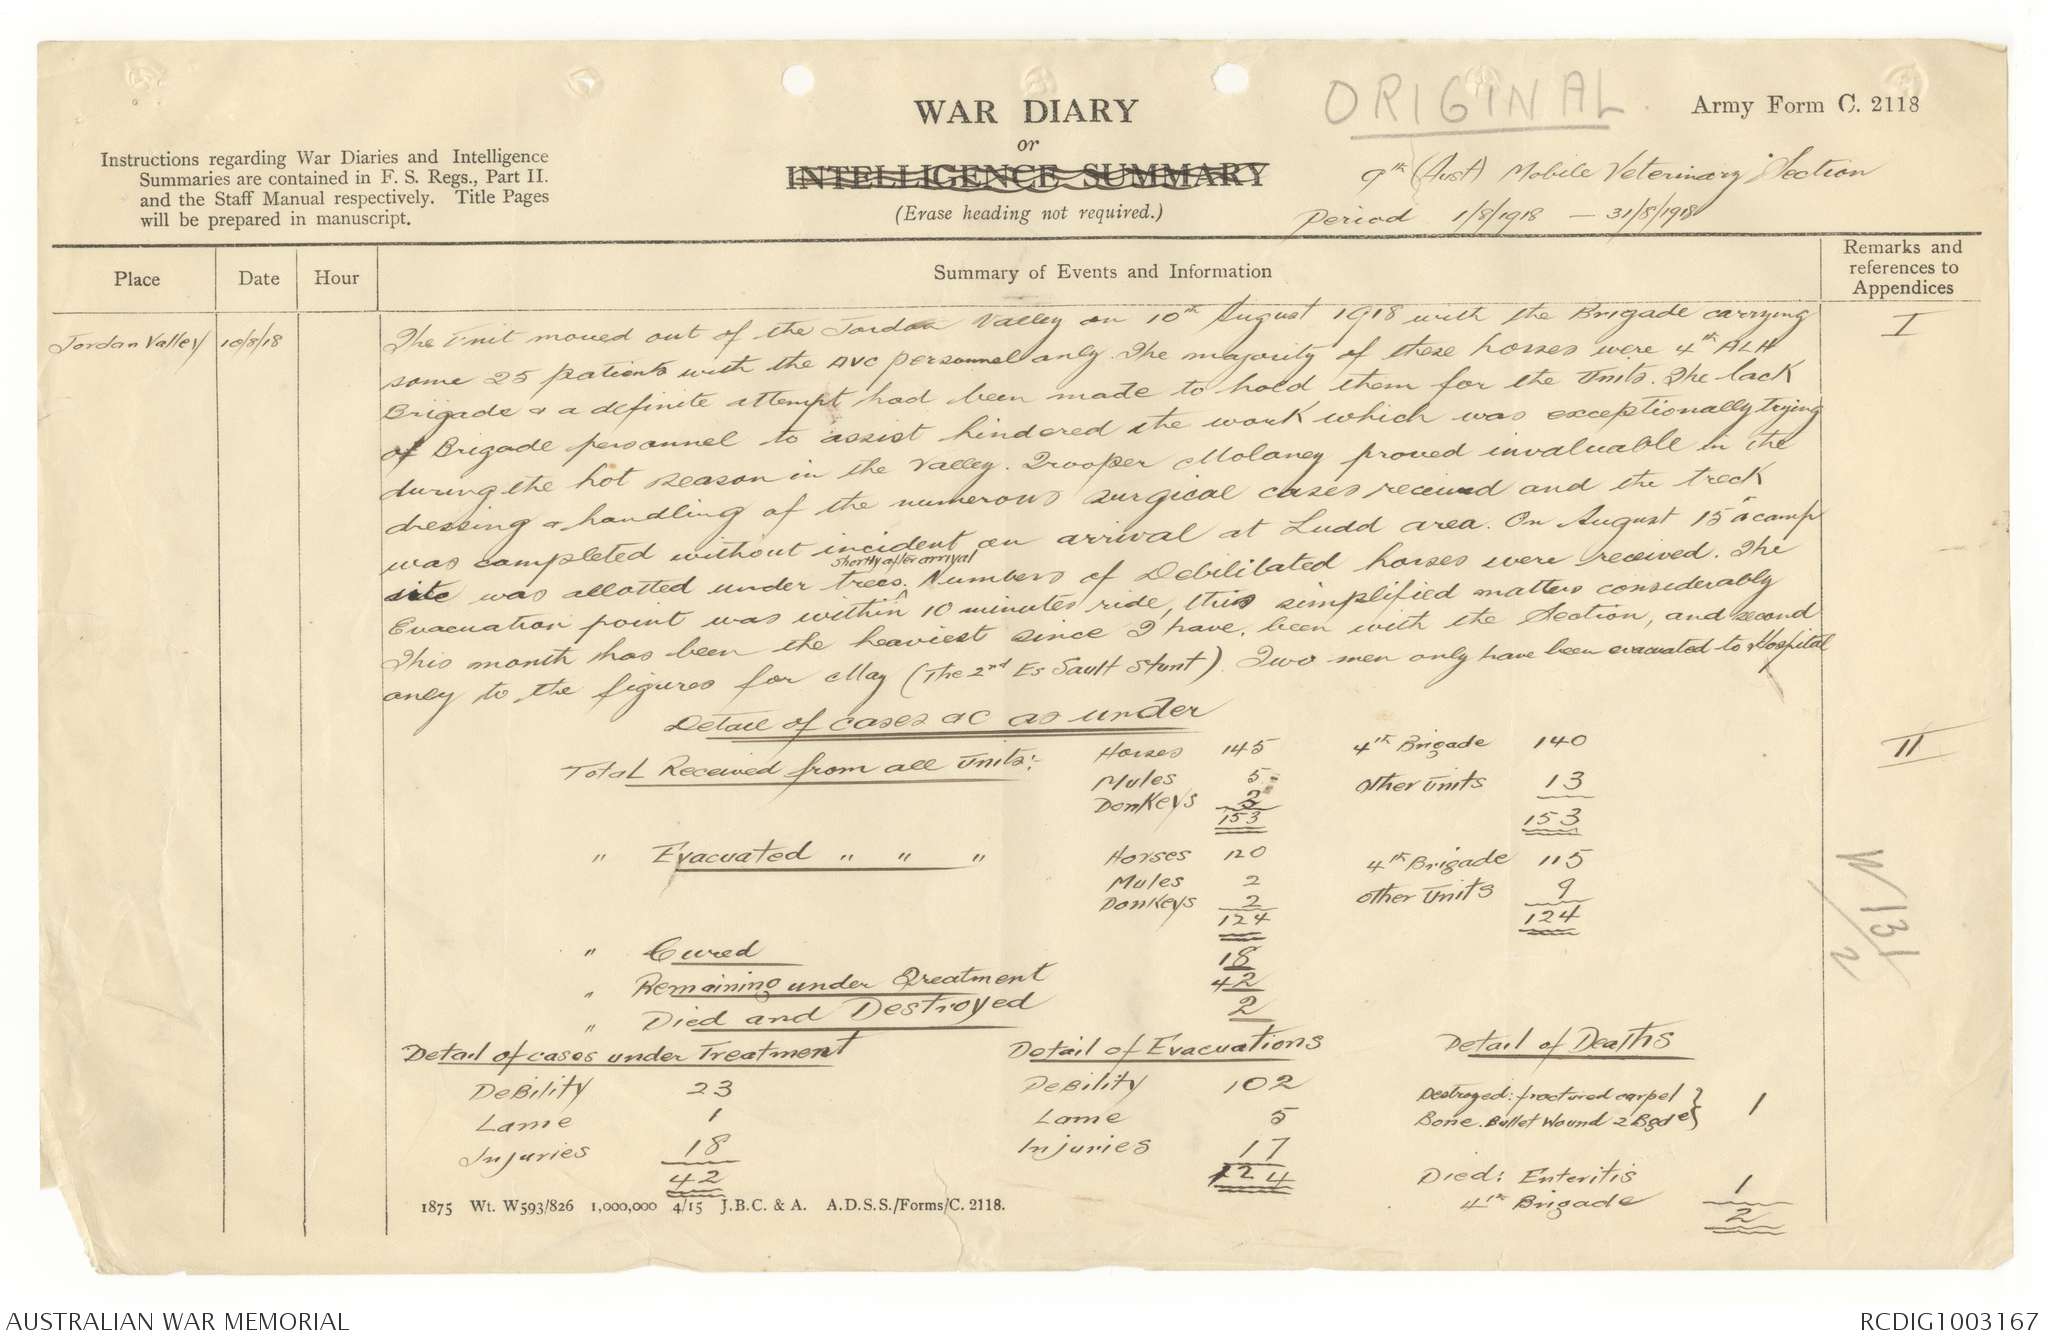 ORIGINAL.
WAR DIARY
Army Form C. 2118
or
INTELLIGENCE SUMMARY
(Erase heading not required.)
Instructions regarding War Diaries and Intelligence
Summaries are contained in F. S. Regs., Part II.
and the Staff Manual respectively. Title Pages
will be prepared in manuscript.
9th (Aust) Mobile Veterinary Section
Period 1/8/1918 — 31/8/1918
Place
Date
Hour
Summary of Events and Information
Remarks and
references to
Appendices
Jordan Valley 10/8/18
The Unit moved out of the Jordan Valley on 10th August 1918 with the Brigade carrying
some 25 patients with the AVC personnel only. The majority of these horses were 4th ALH
Brigade & a definite attempt had been made to hold them for the Units. The lack
of Brigade personnel to assist hindered the work which was exceptionally trying
during the hot season in the Valley. Trooper Molaney proved invaluable in the
dressing & handling of the numerous surgical cases received and the treck
was completed without incident on arrival at Ludd area. On August 15 a camp
shortly after arrival
site was allotted under trees. ^ Numbers of Debilitated horses were received. The
Evacuation point was within 10 minutes ride, this simplified matters considerably
This month has been the heaviest since I have been with the Section, and second
only to the figures for May (The 2nd Es Sault Stunt). Two men only have been evacuated to Hospital
I
Detail of cases ac as under
Total Received from all Units:- Horses 145 4th Brigade 140
II
Mules 5 Other Units 13
Donkeys 3
153 153
" Evacuated " " " Horses 120 4th Brigade 115
Mules 2 Other Units 9
Donkeys 2
124 124
" Cured 18
" Remaining under Treatment 42
" Died and Destroyed 2
W 131/2
Detail of cases under Treatment
Debility 23
Lame 1
Injuries 18
42
Detail of Evacuations
Debility 102
Lame 5
Injuries 17
124
Detail of Deaths
Destroyed: fractured carpel
Bone. Bullet Wound 2 Bgde } 1
Died: Enteritis
4th Brigade 1
2
1875 Wt. W593/826 1,000,000 4/15 J.B.C. & A. A.D.S.S./Forms/C. 2118.
AUSTRALIAN WAR MEMORIAL
RCDIG1003167